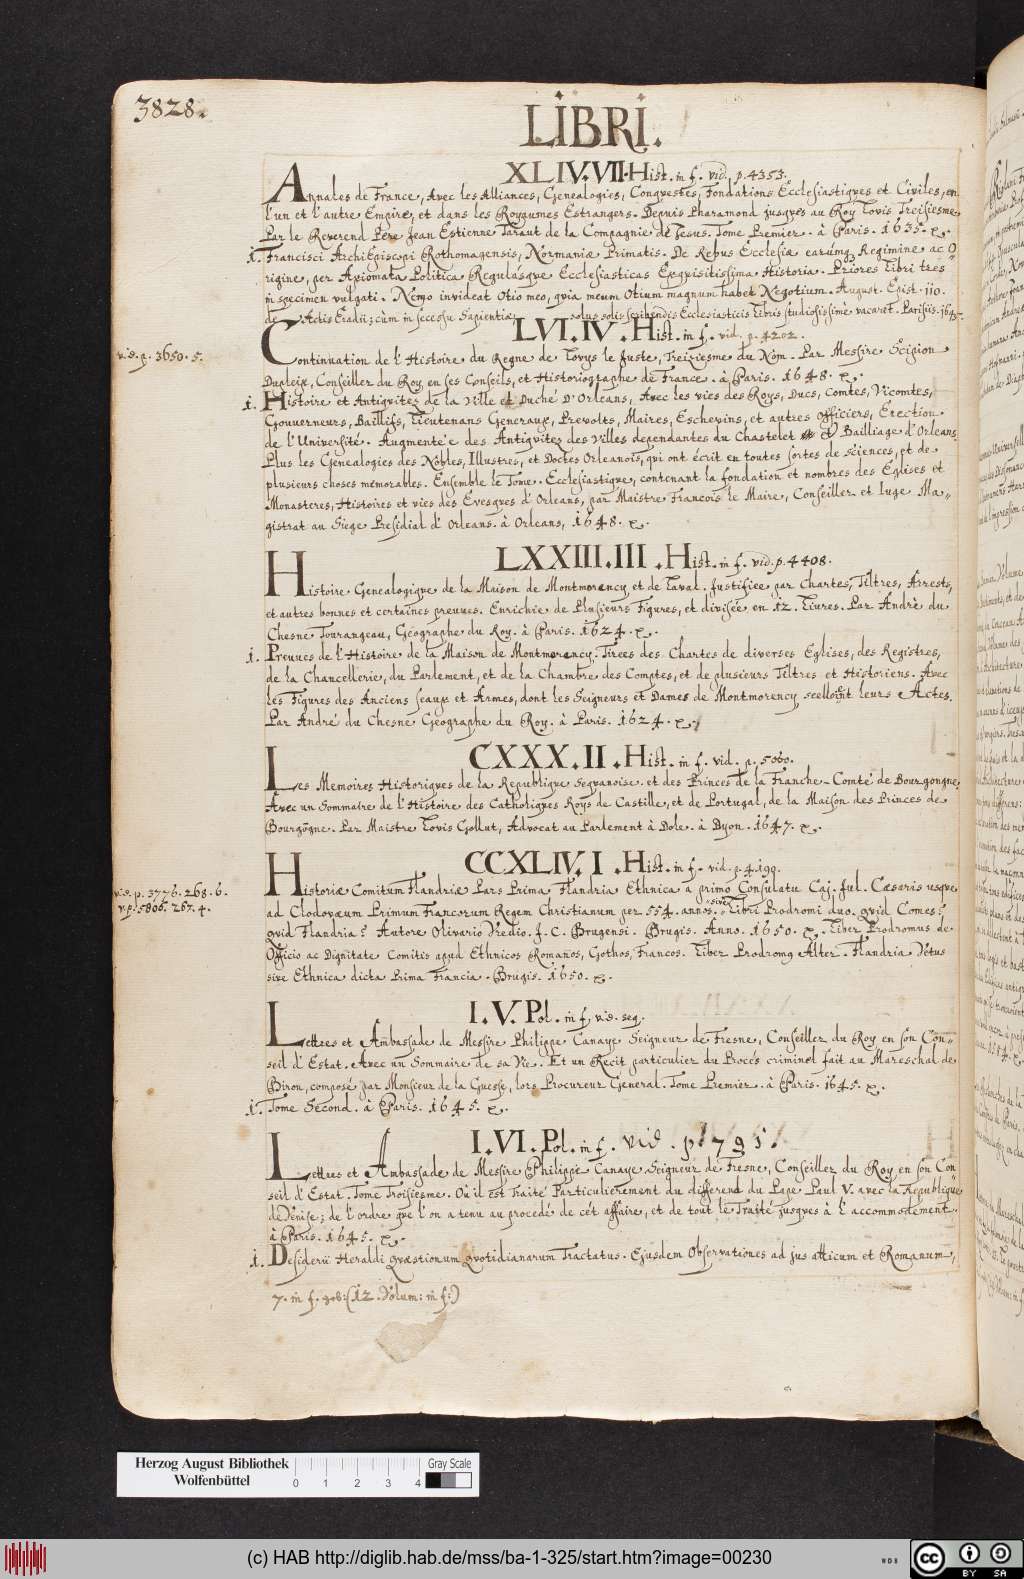 3828.
LIBRI.
XLIV.VII. Hist. in f. vid. p. 4353.
Annales de France, Avec les Alliances, Genealogies, Conquestes, Fondations Ecclesiastiques et Civiles, en
l'un et l'autre Empire, et dans les Royaumes Estrangers. Depuis Pharamond jusques au Roy Lovis Treisiesme
Par le Reverend Pere Jean Estienne Taraut de la Compagnie de Jesus. Tome Premier. à Paris. 1635.
1. Francisci Archiepiscopi Rothomagensis, Normaniæ Primatis. De Rebus Ecclesiæ earumq Regimine ac O
rigine, per Axiomata Politica Regulasque Ecclesiasticas Exquisitissima Historia. Priores libri tres
in specimen vulgati. Nemo invideat Otio meo, quia meum Otium magnum habet Negotium. August. Epist. 110.
de Actis Eradii; cùm in secessu Sapientiæ solus solis scribendis Ecclesiasticis libris studiosissime vacaret. Parisiis. 1645.
LVI.IV. Hist. in f. vid. p. 4202.
vid. p. 3650. 5.
Continuation de l'Histoire du Regne de Lovys le Juste, Treiziesme du Nom. Par Messire Scipion
Dupleix, Conseiller du Roy, en ses Conseils, et Historiographe de France. à Paris. 1648.
1. Histoire et Antiquitez de la Ville et Duché D'Orleans, Avec les vies des Roys, Ducs, Comtes, Vicomtes,
Gouverneurs, Baillifs, Lieutenans Generaux, Prevolts, Maires, Eschevins, et autres Officiers, Erection
de l'Université. Augmentée des Antiquitez des Villes dependantes du Chastelet et Bailliage d'Orleans.
Plus les Genealogies des Nobles, Illustres, et Doctes Orleanois, qui ont écrit en toutes sortes de sciences, et de
plusieurs choses memorables. Ensemble le Tome. Ecclesiastique, contenant la fondation et nombres des Églises et
Monasteres, Histoires et vies des Evesques d'Orleans, par Maistre Francois le Maire, Conseiller et Iuge Ma"
gistrat au Siege Presidial d'Orleans. à Orleans, 1648.
LXXIII.III. Hist. in f. vid. p. 4408.
Histoire Genealogique de la Maison de Montmorency et de Laval. Justifiee par Chartes, Tiltres, Arrests,
et autres bonnes et certaines preuves. Enrichie de Plusieurs Figures, et divisée en 12. Livres. Par Andrè du
Chesne Tourangeau, Géographe du Roy. à Paris. 1624.
1. Preuves de l'Histoire de la Maison de Montmorency. Tirées des Chartes de diverses Eglises, des Registres,
de la Chancellerie, du Parlement, et de la Chambre des Comptes, et de plusieurs Tiltres et Historiens. Avec
les Figures des Anciens seaux et Armes, dont les Seigneurs et Dames de Montmorency seelloient leurs Actes.
Par André du Chesne Géographe du Roy. à Paris. 1624.
CXXX.II. Hist. in f. vid. p. 5060.
Les Memoires Historiques de la Republique Sequanoise. et des Princes de la Franche-Comté de Bourgongne.
Avec un Sommaire de l'Histoire des Catholiques Roys de Castille, et de Portugal, de la Maison des Princes de
Bourgōgne. Par Maistre Lovis Gollut, Advocat au Parlement à Dole. à Dyon. 1647.
CCXLIV.I. Hist. in f. vid. p. 4199.
vid. p. 3776. 268. 6.
v. p. 5806. 267. 4.
Historiæ Comitum Flandriæ Pars Prima Flandria Ethnica a primo Consulatu Caj. Jul. Cæsaris usque
ad Clodovæum Primum Francorum Regem Christianum per 554. annos. sive Libri Prodromi duo. quid Comes?
quid Flandria? Autore Olivario Vredio. J. C. Brugensi. Brugis. Anno. 1650. Liber Prodromus de
Officio ac Dignitate Comitis apud Ethnicos Romanos, Gothos, Francos. Liber Prodromq Alter. Flandria Vetus
sive Ethnica dicta Prima Francia. Brugis. 1650.
I.V. Pol. in f. vid. seq.
Lettres et Ambassade de Messire Philippe Canaye Seigneur de Fresne, Conseiller du Roy en son Con"
seil d'Estat. Avec un Sommaire de sa Vie. Et un Recit particulier du Procés criminel fait au Mareschal de
Biron, composé par Monsieur de la Guesse, lors Procureur General. Tome Premier. à Paris. 1645.
1. Tome Second. à Paris. 1645.
I.VI. Pol. in f. vid. p. 1791.
Lettres et Ambassade de Messire Philippe Canaye Seigneur de Fresne, Conseiller du Roy en son Con
seil d'Estat. Tome Troisiesme. Où il est Traité Particulierement du differend du Pape Paul V. avec la Republique
de Venise; de l'ordre que l'on a tenu au procedé de cét affaire, et de tout le Traité jusques à l'accommodement.
à Paris. 1645.
1. Desiderii Heraldi Quæstionum quotidianarum Tractatus. Ejusdem Observationes ad jus atticum et Romanum,
7. in f. (12. Volum: in f:)
Herzog August Bibliothek
Wolfenbüttel
0 1 2 3 4
Gray Scale
(c) HAB http://diglib.hab.de/mss/ba-1-325/start.htm?image=00230
WDB
BY SA